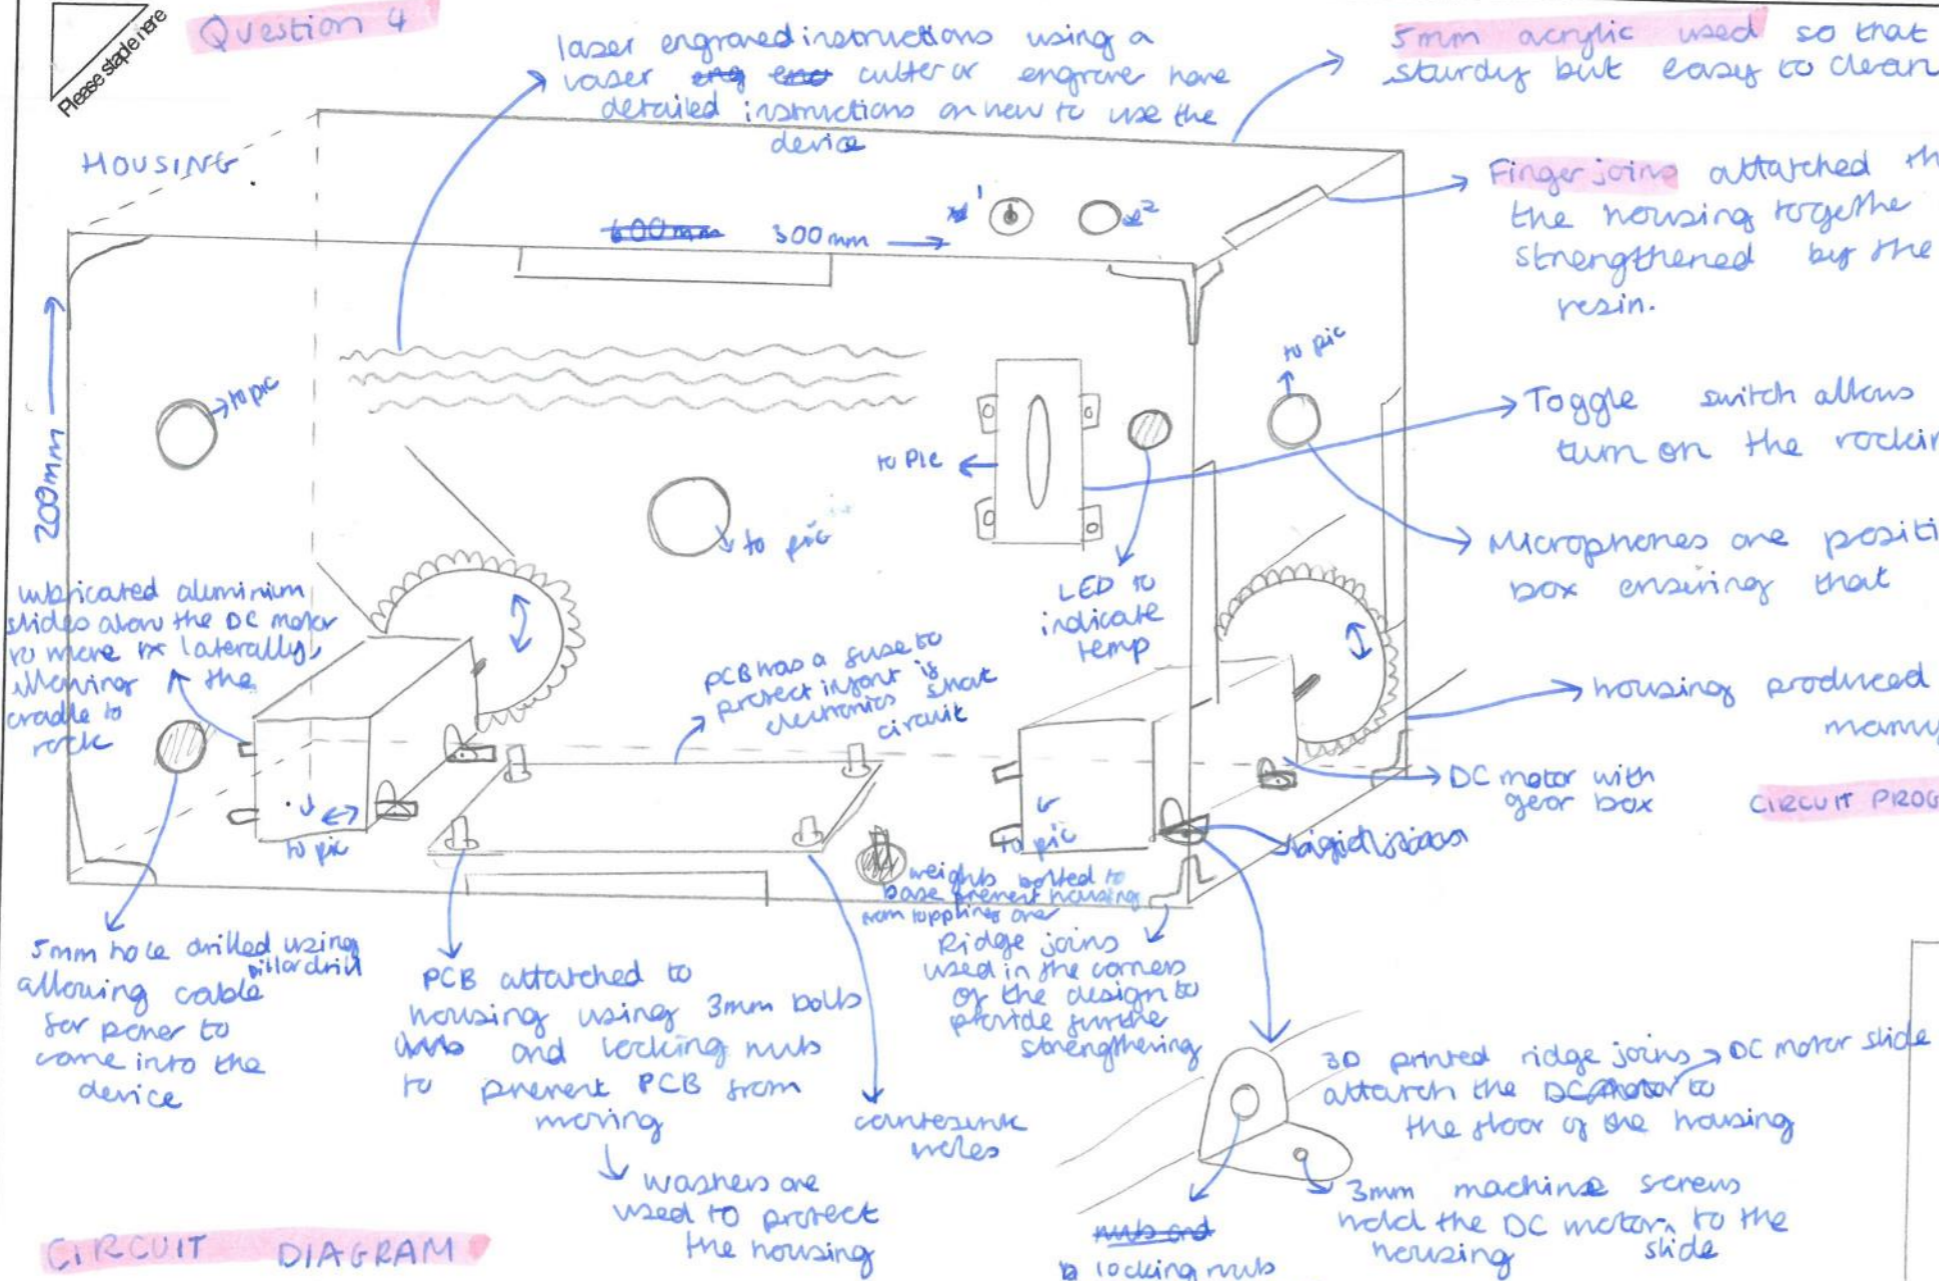 Please staple here
Question 4
laser engraved instructions using a
laser cutter or engrave have
detailed instructions on how to use the
device
5mm acrylic used so that
sturdy but easy to clean
HOUSING
Finger joins attatched th
the housing togethe
strengthened by the
resin.
600mm 300mm
1
2
200mm
to pic
to pic
to pic
to PIC
Toggle switch allows
turn on the rockin
LED to
indicate
temp
Microphones are positi
box ensuring that
lubricated aluminium
slides allow the DC motor
to move laterally,
allowing the
cradle to
rock
PCB has a fuse to
protect infant if
electronics short
circuit
housing produced
DC motor with
gear box
CIRCUIT PROG
to pic
to pic
weights bolted to
base prevent housing
from toppling over
5mm hole drilled using
pillar drill
allowing cable
for power to
come into the
device
PCB attatched to
housing using 3mm bolts
and locking nuts
to prevent PCB from
moving
washers are
used to protect
the housing
countersink
holes
Ridge joins
used in the corners
of the design to
provide further
strengthening
3D printed ridge joins DC motor slide
attatch the DC motor to
the floor of the housing
3mm machine screws
hold the DC motor to the
housing slide
nuts and
locking nuts
CIRCUIT DIAGRAM